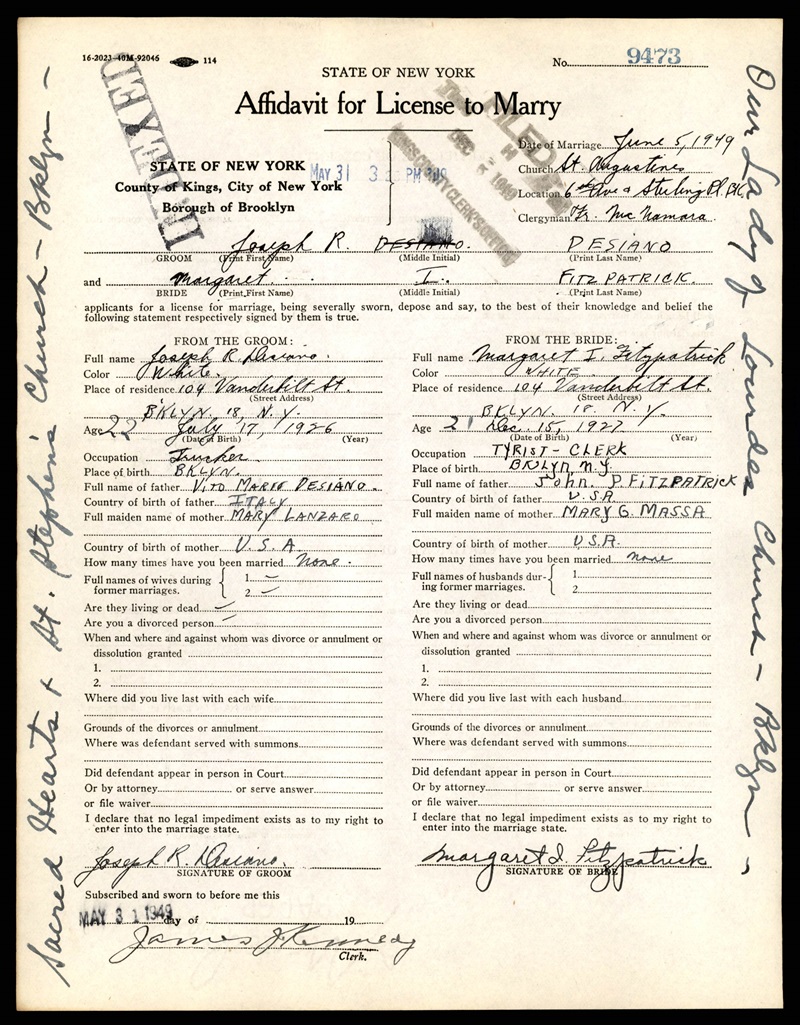 16-2023-40M-92046 114
No. 9473
STATE OF NEW YORK
Affidavit for License to Marry
INDEXED
FILED
STATE OF NEW YORK
County of Kings, City of New York
Borough of Brooklyn
MAY 31 3 PM
Date of Marriage June 5, 1949
Church St. Augustines
Location 6th Ave & Sterling Pl. BK
Clergyman Fr. Mc Namara
Joseph R. DESIANO. DESIANO
GROOM (Print First Name) (Middle Initial) (Print Last Name)
and Margaret I. FITZPATRICK.
BRIDE (Print First Name) (Middle Initial) (Print Last Name)
applicants for a license for marriage, being severally sworn, depose and say, to the best of their knowledge and belief the
following statement respectively signed by them is true.
FROM THE GROOM:
Full name Joseph R. Desiano.
Color White.
Place of residence 104 Vanderbilt St.
(Street Address)
BKLYN, 18, N.Y.
Age 22 July 17, 1926
(Date of Birth) (Year)
Occupation Trucker
Place of birth BKLYN.
Full name of father VITO MARIE DESIANO.
Country of birth of father ITALY
Full maiden name of mother MARY LANZARO
Country of birth of mother U.S.A.
How many times have you been married None.
Full names of wives during former marriages. { 1. —
2. —
Are they living or dead —
Are you a divorced person —
When and where and against whom was divorce or annulment or
dissolution granted
1.
2.
Where did you live last with each wife
Grounds of the divorces or annulment
Where was defendant served with summons
Did defendant appear in person in Court
Or by attorney or serve answer
or file waiver
I declare that no legal impediment exists as to my right to
enter into the marriage state.
Joseph R. Desiano.
SIGNATURE OF GROOM
Subscribed and sworn to before me this
MAY 31 1949 day of 19
James J. Kennedy
Clerk.
FROM THE BRIDE:
Full name Margaret I. Fitzpatrick
Color WHITE
Place of residence 104 Vanderbilt St.
(Street Address)
BKLYN. 18. N.Y.
Age 21 Dec. 15, 1927
(Date of Birth) (Year)
Occupation TYPIST - CLERK
Place of birth BKLYN, N.Y.
Full name of father John. P FITZPATRICK
Country of birth of father U.S.A
Full maiden name of mother MARY G. MASSA
Country of birth of mother U.S.A.
How many times have you been married none
Full names of husbands dur-ing former marriages. { 1.
2.
Are they living or dead
Are you a divorced person
When and where and against whom was divorce or annulment or
dissolution granted
1.
2.
Where did you live last with each husband
Grounds of the divorces or annulment
Where was defendant served with summons
Did defendant appear in person in Court
Or by attorney or serve answer
or file waiver
I declare that no legal impediment exists as to my right to
enter into the marriage state.
Margaret I. Fitzpatrick
SIGNATURE OF BRIDE
Sacred Hearts & St. Stephen's Church - Bklyn -
Our Lady of Lourdes Church - Bklyn -